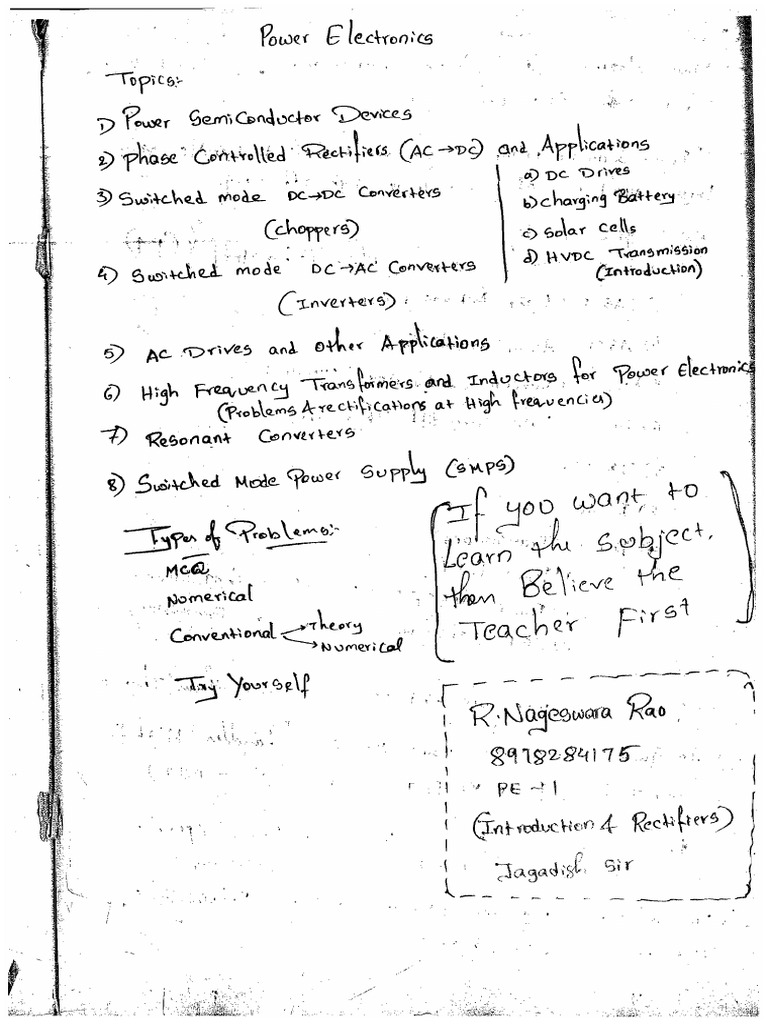 Power Electronics
Topics:-
1) Power Semiconductor Devices
2) Phase Controlled Rectifiers (AC→DC) and Applications
a) DC Drives
b) Charging Battery
c) Solar Cells
d) HVDC Transmission
(Introduction)
3) Switched mode DC→DC Converters
(choppers)
4) Switched mode DC→AC Converters
(Inverters)
5) AC Drives and other Applications
6) High Frequency Transformers and Inductors for Power Electronics
(Problems & rectifications at High frequencies)
7) Resonant Converters
8) Switched Mode Power Supply (SMPS)
Types of Problems:-
MCQ
Numerical
Conventional → Theory
→ Numerical
Try Yourself
If you want to
Learn the subject,
then Believe the
Teacher First
R. Nageswara Rao
8978284175
PE-1
(Introduction & Rectifiers)
Jagadish sir